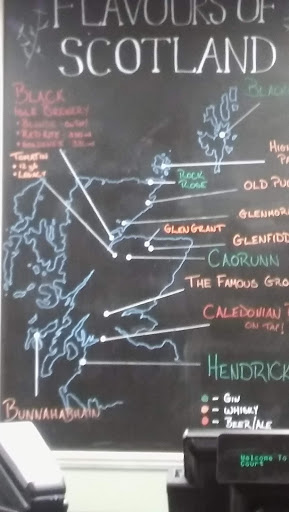 FLAVOURS OF
SCOTLAND
BLACK
ISLE BREWERY
• BLONDE - ON TAP!
• RED KITE -
TOMATIN
• 12 yr
• LEGACY
BLACK
HIGH
PA
ROCK
ROSE
OLD PU
GLENMOR
GLEN GRANT
GLENFIDD
CAORUNN
THE FAMOUS GRO
CALEDONIAN
ON TAP!
HENDRICK
BUNNAHABHAIN
- GIN
- WHISKY
- BEER/ALE
Welcome To
Court